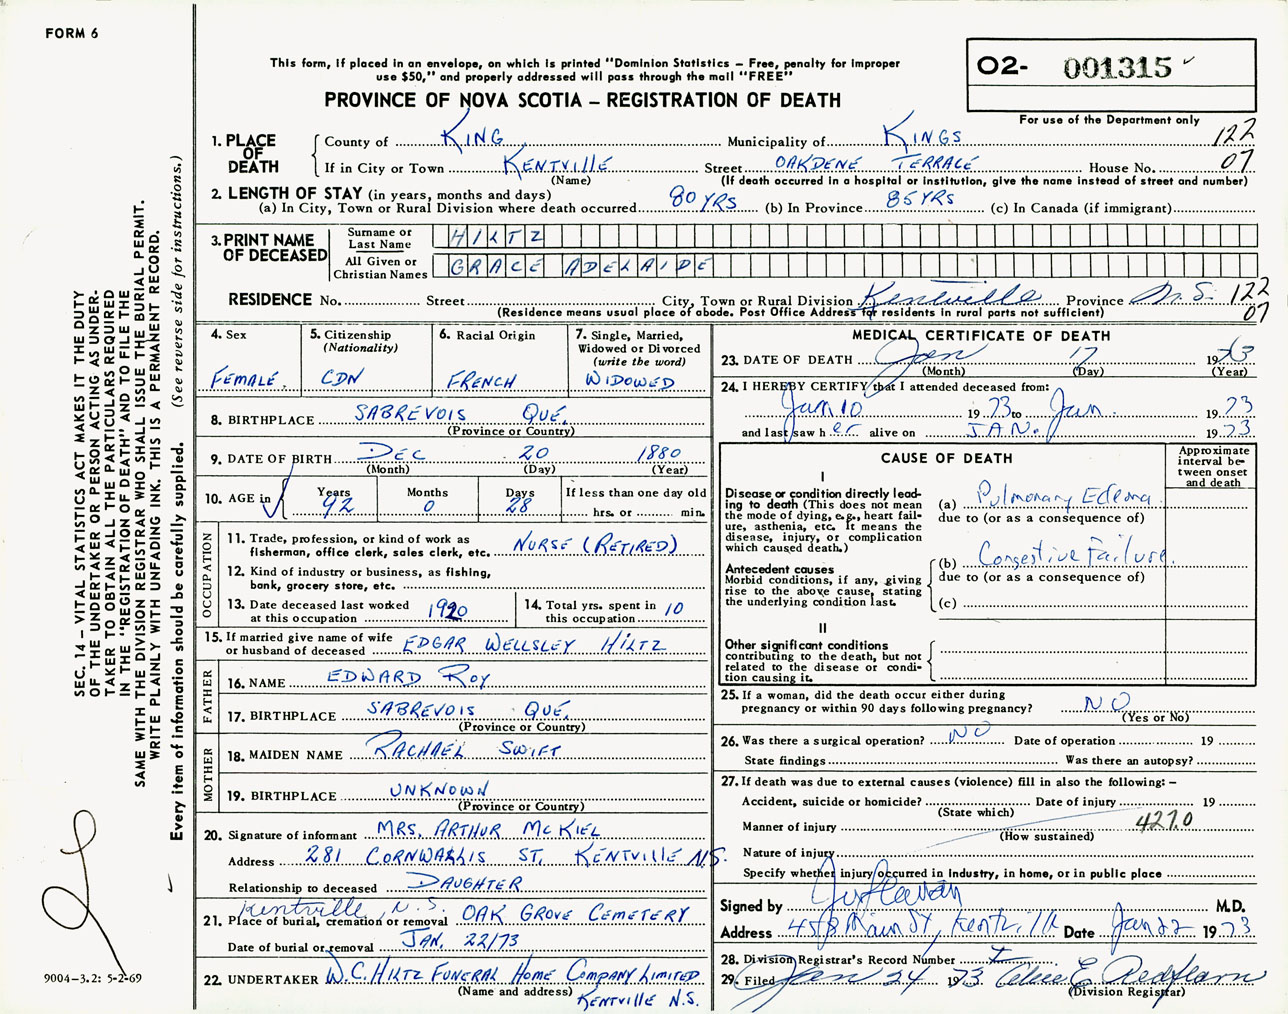 FORM 6
This form, if placed in an envelope, on which is printed "Dominion Statistics – Free, penalty for improper
use $50," and properly addressed will pass through the mail "FREE"
PROVINCE OF NOVA SCOTIA – REGISTRATION OF DEATH
O2- 001315
For use of the Department only
122
07
SEC. 14 – VITAL STATISTICS ACT MAKES IT THE DUTY
OF THE UNDERTAKER OR PERSON ACTING AS UNDER-
TAKER TO OBTAIN ALL THE PARTICULARS REQUIRED
IN THE "REGISTRATION OF DEATH" AND TO FILE THE
SAME WITH THE DIVISION REGISTRAR WHO SHALL ISSUE THE BURIAL PERMIT.
WRITE PLAINLY WITH UNFADING INK. THIS IS A PERMANENT RECORD.
Every item of information should be carefully supplied. (See reverse side for instructions.)
1. PLACE OF DEATH
County of KING Municipality of KINGS
If in City or Town KENTVILLE Street OAKDENE TERRACE House No.
(Name) (If death occurred in a hospital or institution, give the name instead of street and number)
2. LENGTH OF STAY (in years, months and days)
(a) In City, Town or Rural Division where death occurred 80 YRS (b) In Province 85 YRS (c) In Canada (if immigrant)
3. PRINT NAME OF DECEASED
Surname or Last Name HILTZ
All Given or Christian Names GRACE ADELAIDE
RESIDENCE No. Street City, Town or Rural Division Kentville Province N.S. 122
07
(Residence means usual place of abode. Post Office Address for residents in rural parts not sufficient)
4. Sex FEMALE.
5. Citizenship (Nationality) CDN
6. Racial Origin FRENCH
7. Single, Married, Widowed or Divorced (write the word) WIDOWED
8. BIRTHPLACE SABREVOIS QUE.
(Province or Country)
9. DATE OF BIRTH DEC 20 1880
(Month) (Day) (Year)
10. AGE in Years 92 Months 0 Days 28 If less than one day old hrs. or min.
OCCUPATION
11. Trade, profession, or kind of work as
fisherman, office clerk, sales clerk, etc. NURSE (RETIRED)
12. Kind of industry or business, as fishing,
bank, grocery store, etc.
13. Date deceased last worked
at this occupation 1920
14. Total yrs. spent in
this occupation 10
15. If married give name of wife
or husband of deceased EDGAR WELLSLEY HILTZ
FATHER
16. NAME EDWARD ROY
17. BIRTHPLACE SABREVOIS QUE.
(Province or Country)
MOTHER
18. MAIDEN NAME RACHAEL SWIFT
19. BIRTHPLACE UNKNOWN
(Province or Country)
20. Signature of informant MRS. ARTHUR MCKIEL
Address 281 CORNWALLIS ST. KENTVILLE N.S.
Relationship to deceased DAUGHTER
Kentville, N.S.
21. Place of burial, cremation or removal OAK GROVE CEMETERY
Date of burial or removal JAN. 22/73
22. UNDERTAKER W.C. HILTZ FUNERAL HOME COMPANY LIMITED
(Name and address) KENTVILLE N.S.
9004–3.2: 5-2-69
MEDICAL CERTIFICATE OF DEATH
23. DATE OF DEATH Jan 17 1973
(Month) (Day) (Year)
24. I HEREBY CERTIFY that I attended deceased from:
Jan 10 1973 to Jan. 1973
and last saw her alive on JAN. 1973
CAUSE OF DEATH
Approximate interval be-tween onset and death
I
Disease or condition directly lead-
ing to death (This does not mean
the mode of dying, e.g., heart fail-
ure, asthenia, etc. It means the
disease, injury, or complication
which caused death.)
(a) Pulmonary Edema
due to (or as a consequence of)
Antecedent causes
Morbid conditions, if any, giving
rise to the above cause, stating
the underlying condition last.
(b) Congestive Failure
due to (or as a consequence of)
(c)
II
Other significant conditions
contributing to the death, but not
related to the disease or condi-
tion causing it.
25. If a woman, did the death occur either during
pregnancy or within 90 days following pregnancy? NO
(Yes or No)
26. Was there a surgical operation? NO Date of operation 19
State findings Was there an autopsy?
27. If death was due to external causes (violence) fill in also the following: –
Accident, suicide or homicide? Date of injury 19
(State which)
Manner of injury 427.0
(How sustained)
Nature of injury
Specify whether injury occurred in industry, in home, or in public place
Signed by M.D.
Address 458 Main St, Kentville Date Jan 22 1973
28. Division Registrar's Record Number
29. Filed Jan 24 1973
(Division Registrar)